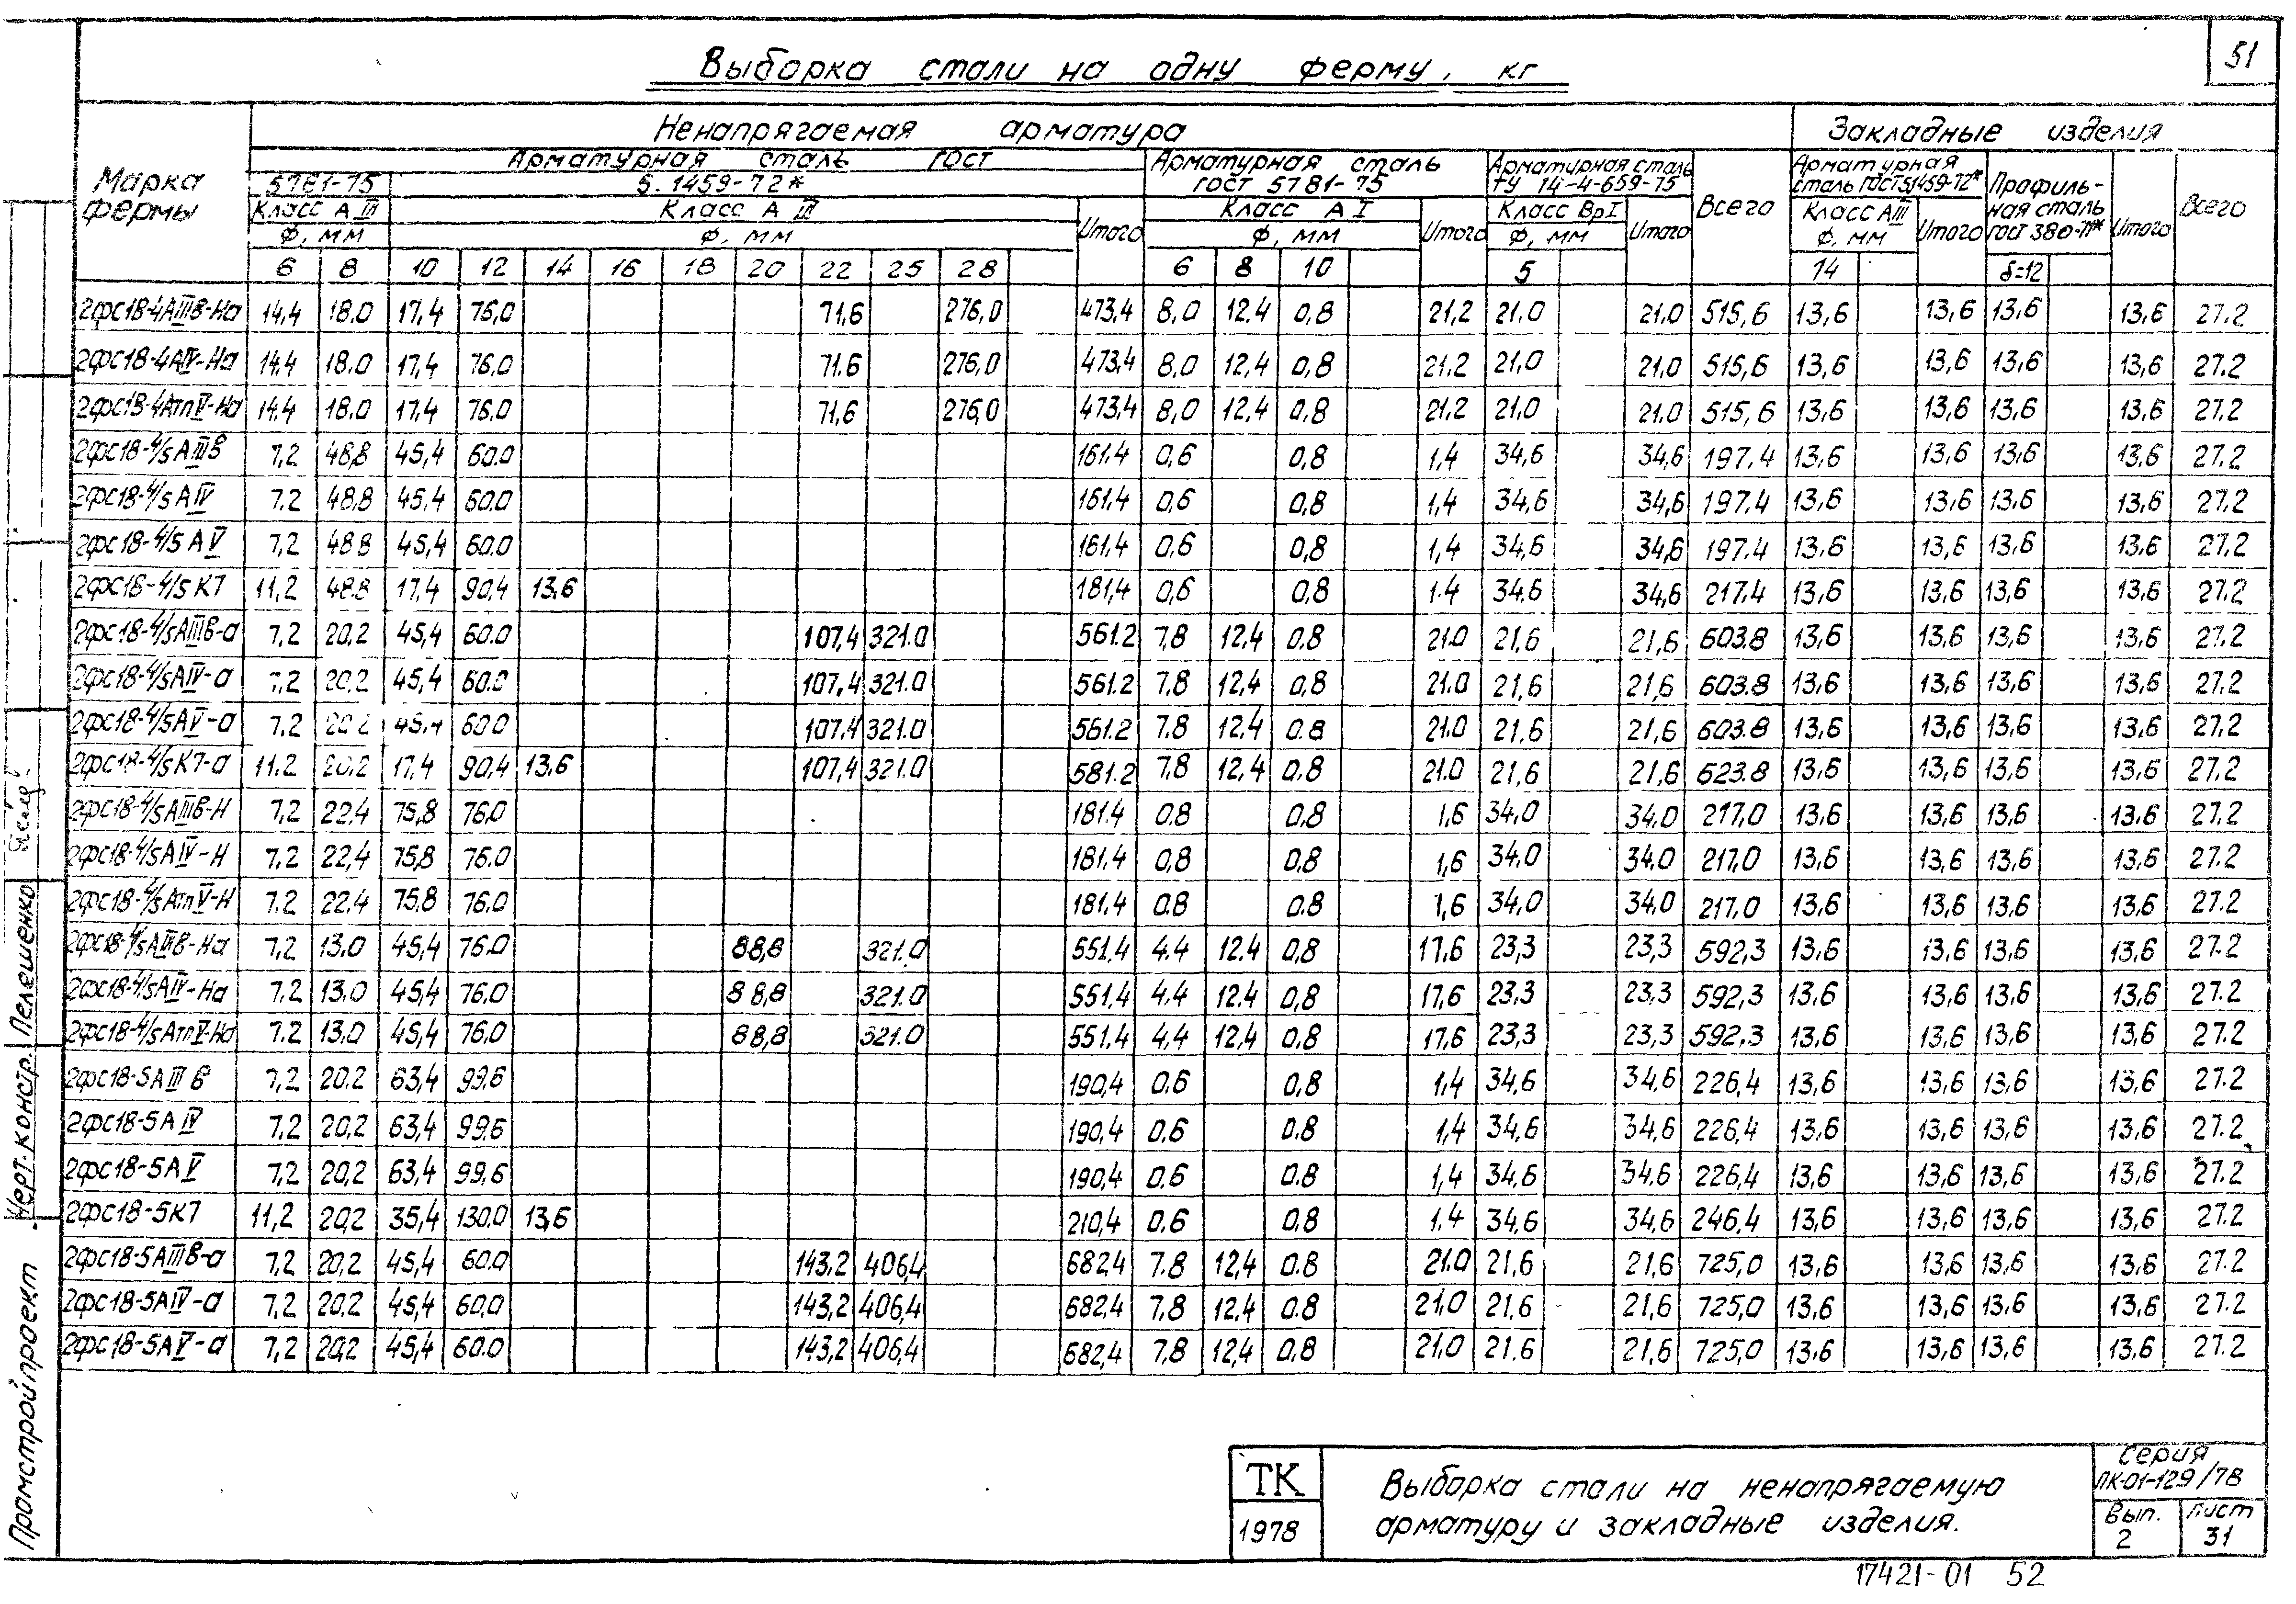 51
Выборка стали на одну ферму, кг
Марка фермы
Ненапрягаемая арматура
Закладные изделия
Арматурная сталь ГОСТ
Арматурная сталь ГОСТ 5781-75
Арматурная сталь ТУ 14-4-659-75
Всего
Арматурная сталь ГОСТ 51459-72*
Профильная сталь ГОСТ 380-71*
Итого
Всего
5781-75
5.1459-72*
Класс АIII
Класс АIII
Итого
Класс АI
Итого
Класс ВрI
Итого
Класс АIII
Итого
ф, мм
ф, мм
ф, мм
ф, мм
ф, мм
6 8 10 12 14 16 18 20 22 25 28 6 8 10 5 14 δ=12
2фс18-4АIIIв-На 14,4 18.0 17,4 76,0 71,6 276,0 473,4 8,0 12.4 0,8 21,2 21.0 21.0 515,6 13,6 13,6 13,6 13,6 27.2
2фс18-4АIV-На 14.4 18.0 17,4 76,0 71.6 276,0 473,4 8,0 12,4 0,8 21.2 21,0 21,0 515,6 13,6 13,6 13,6 13,6 27.2
2фс18-4АтпV-На 14,4 18.0 17,4 76,0 71,6 276,0 473,4 8,0 12,4 0,8 21,2 21,0 21.0 515,6 13,6 13,6 13,6 13,6 27.2
2фс18-4/5АIIIв 7,2 48,8 45,4 60.0 161.4 0,6 0,8 1,4 34,6 34,6 197.4 13,6 13,6 13,6 13,6 27.2
2фс18-4/5АIV 7.2 48,8 45,4 60.0 161,4 0,6 0,8 1,4 34,6 34,6 197.4 13,6 13,6 13,6 13,6 27.2
2фс18-4/5АV 7,2 48 8 45,4 60.0 161.4 0,6 0,8 1,4 34,6 34,6 197.4 13,6 13,6 13,6 13,6 27.2
2фс18-4/5К7 11,2 48.8 17,4 90,4 13,6 181,4 0,6 0,8 1.4 34.6 34,6 217.4 13,6 13,6 13,6 13,6 27.2
2фс18-4/5АIIIв-а 7,2 20,2 45,4 60.0 107,4 321.0 561.2 7,8 12,4 0.8 21.0 21,6 21,6 603.8 13,6 13,6 13,6 13,6 27.2
2фс18-4/5АIV-а 7,2 20,2 45,4 60.0 107,4 321.0 561.2 7,8 12,4 0,8 21.0 21,6 21,6 603.8 13,6 13,6 13,6 13,6 27.2
2фс18-4/5АV-а 7.2 20.2 45,4 60.0 107,4 321.0 561.2 7.8 12,4 0.8 21.0 21.6 21,6 603.8 13,6 13,6 13,6 13,6 27.2
2фс18-4/5К7-а 11.2 20,2 17,4 90,4 13,6 107,4 321.0 581.2 7,8 12,4 0,8 21.0 21,6 21,6 623.8 13,6 13,6 13,6 13,6 27.2
2фс18-4/5АIIIв-Н 7,2 22,4 75,8 76.0 181.4 0.8 0,8 1,6 34,0 34,0 217,0 13,6 13,6 13,6 13,6 27.2
2фс18-4/5АIV-Н 7.2 22,4 75,8 76.0 181,4 0,8 0,8 1,6 34.0 34.0 217,0 13,6 13,6 13,6 13,6 27.2
2фс18-4/5АтпV-Н 7.2 22.4 75.8 76.0 181.4 0.8 0.8 1,6 34,0 34,0 217,0 13,6 13,6 13,6 13,6 27.2
2фс18-4/5АIIIв-На 7,2 13.0 45,4 76.0 88,8 321.0 551,4 4.4 12.4 0,8 17,6 23,3 23,3 592,3 13,6 13,6 13,6 13,6 27.2
2фс18-4/5АIV-На 7.2 13.0 45,4 76,0 88,8 321.0 551,4 4,4 12.4 0,8 17,6 23,3 23,3 592,3 13,6 13,6 13,6 13,6 27.2
2фс18-4/5АтпV-На 7.2 13,0 45,4 76,0 88,8 321.0 551.4 4,4 12,4 0,8 17,6 23,3 23,3 592,3 13,6 13,6 13,6 13,6 27.2
2фс18-5АIIIв 7,2 20,2 63,4 99,6 190,4 0,6 0,8 1,4 34,6 34,6 226,4 13,6 13,6 13,6 13,6 27.2
2фс18-5АIV 7.2 20,2 63,4 99,6 190,4 0,6 0.8 1,4 34,6 34,6 226,4 13,6 13,6 13,6 13,6 27.2
2фс18-5АV 7,2 20,2 63,4 99,6 190,4 0,6 0.8 1,4 34,6 34,6 226,4 13,6 13,6 13,6 13,6 27.2
2фс18-5К7 11,2 20,2 35,4 130.0 13,6 210,4 0,6 0.8 1.4 34,6 34,6 246.4 13,6 13,6 13,6 13,6 27.2
2фс18-5АIIIв-а 7,2 20,2 45,4 60.0 143,2 406,4 682,4 7.8 12,4 0.8 21.0 21,6 21,6 725,0 13,6 13,6 13,6 13,6 27.2
2фс18-5АIV-а 7,2 20,2 45,4 60,0 143,2 406,4 682,4 7,8 12,4 0.8 21,0 21,6 21,6 725,0 13,6 13,6 13,6 13,6 27.2
2фс18-5АV-а 7,2 20,2 45,4 60.0 143,2 406,4 682,4 7,8 12,4 0.8 21,0 21.6 21,6 725,0 13,6 13,6 13,6 13,6 27.2
Промстройпроект Черт. констр. Пелешенко
ТК
1978
Выборка стали на ненапрягаемую
арматуру и закладные изделия.
Серия
ПК-01-129/78
Вып.
2
Лист
31
17421-01 52